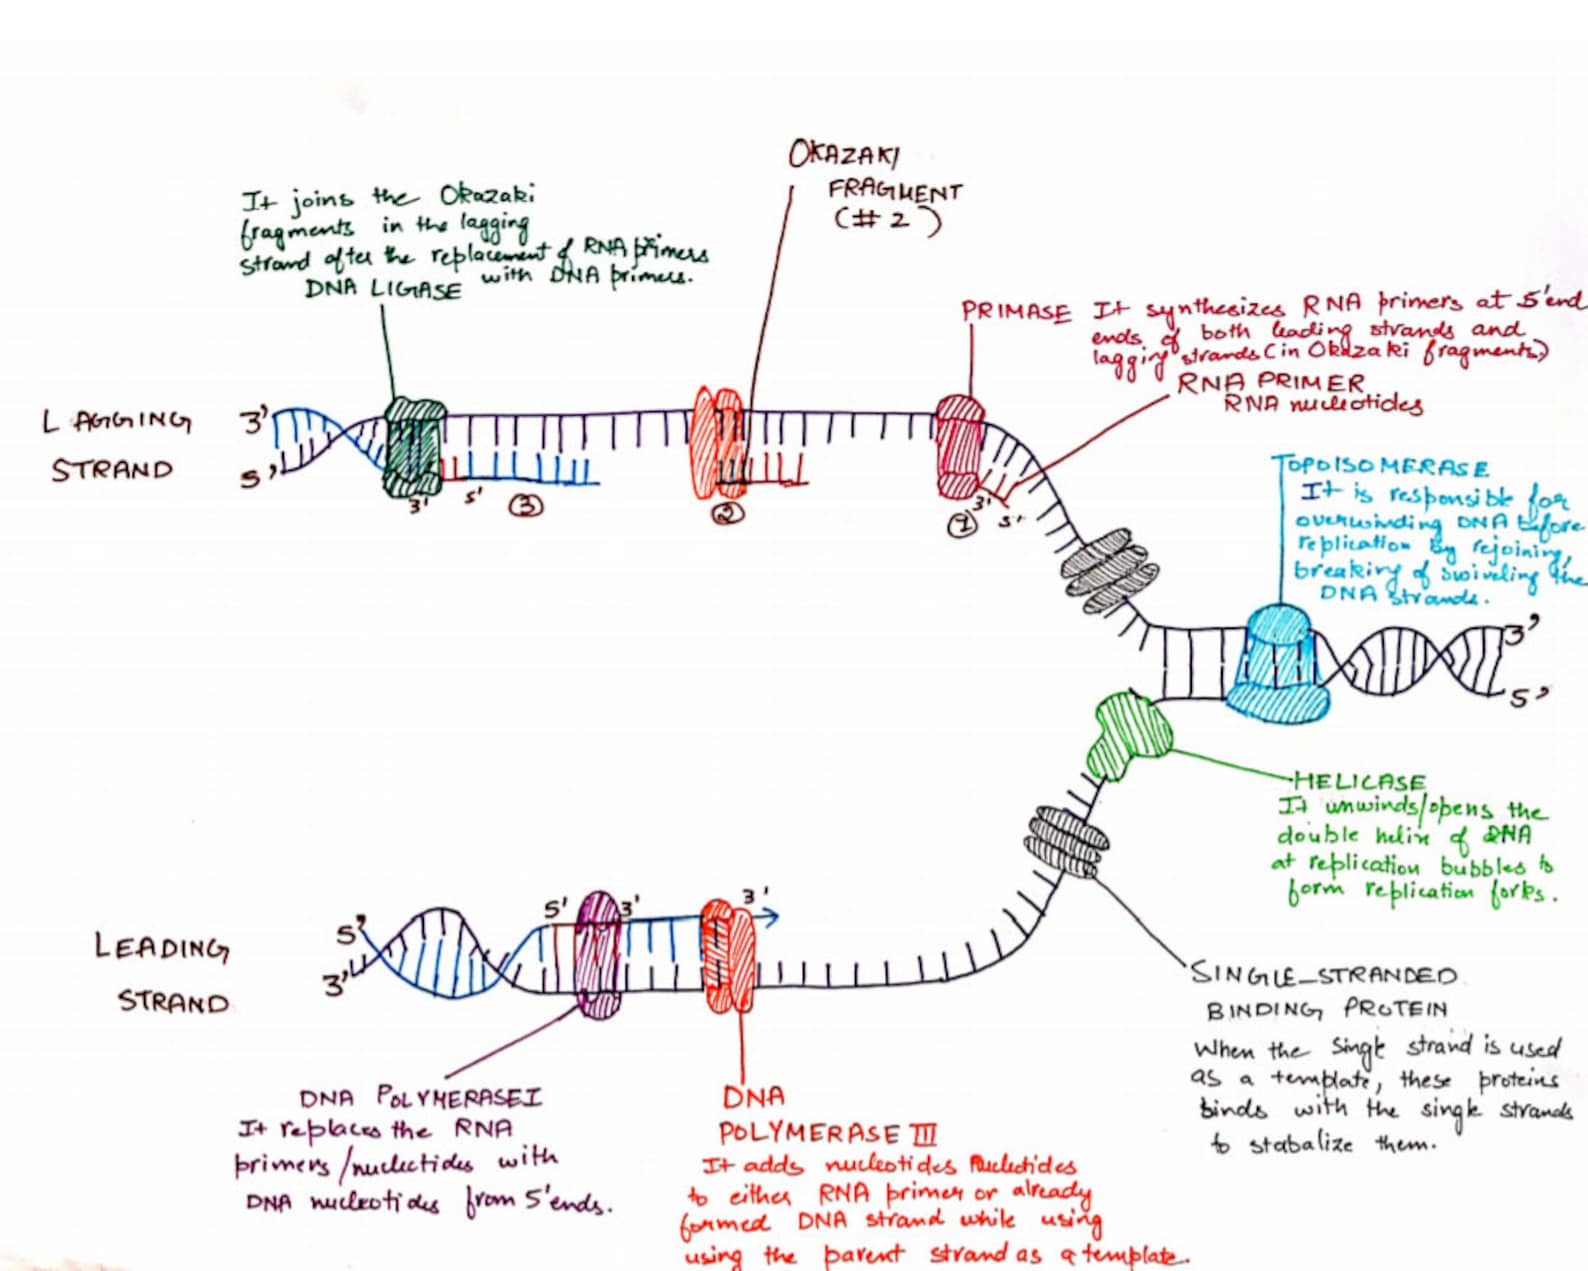 OKAZAKI
FRAGMENT
(#2)
It joins the Okazaki
fragments in the lagging
strand after the replacement of RNA primers
with DNA primers.
DNA LIGASE
PRIMASE It synthesizes RNA primers at 5'end
ends of both leading strands and
lagging strands (in Okazaki fragments)
RNA PRIMER
RNA nucleotides
LAGGING
STRAND
3'
5'
3'
5'
3
2
1
3'
5'
TOPOISOMERASE
It is responsible for
overwinding DNA before
replication by rejoining,
breaking of swiveling the
DNA strands.
3'
5'
HELICASE
It unwinds/opens the
double helix of DNA
at replication bubbles to
form replication forks.
LEADING
STRAND
5'
3'
5'
3'
3'
SINGLE-STRANDED
BINDING PROTEIN
When the single strand is used
as a template, these proteins
binds with the single strands
to stabalize them.
DNA POLYMERASE I
It replaces the RNA
primers/nuclectides with
DNA nucleotides from 5'ends.
DNA
POLYMERASE III
It adds nucleotides Nucleotides
to either RNA primer or already
formed DNA strand while using
using the parent strand as a template.